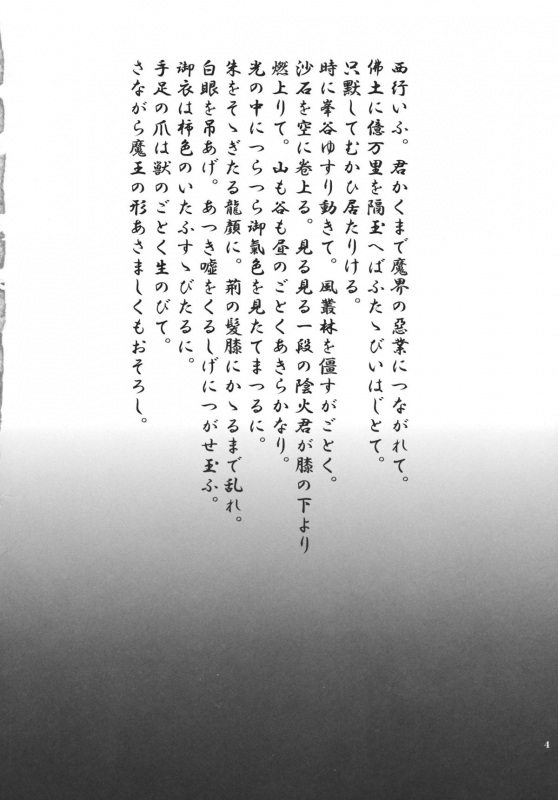 西行いふ。君かくまで魔界の惡業につながれて。
佛土に億万里を隔玉へばふたゝびいはじとて。
只默してむかひ居たりける。
時に峯谷ゆすり動きて。風叢林を僵すがごとく。
沙石を空に卷上る。見る見る一段の陰火君が膝の下より
燃上りて。山も谷も昼のごとくあきらかなり。
光の中につらつら御氣色を見たてまつるに。
朱をそゝぎたる龍顔に。荊の髮膝にかゝるまで乱れ。
白眼を吊あげ。あつき嘘をくるしげにつがせ玉ふ。
御衣は柿色のいたふすゝびたるに。
手足の爪は獣のごとく生のびて。
さながら魔王の形あさましくもおそろし。
4